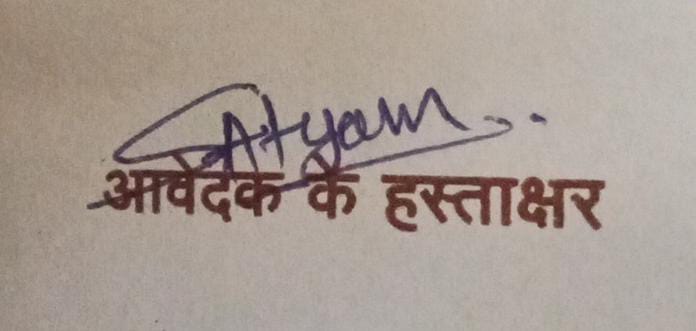 Satyam..
आवेदक के हस्ताक्षर